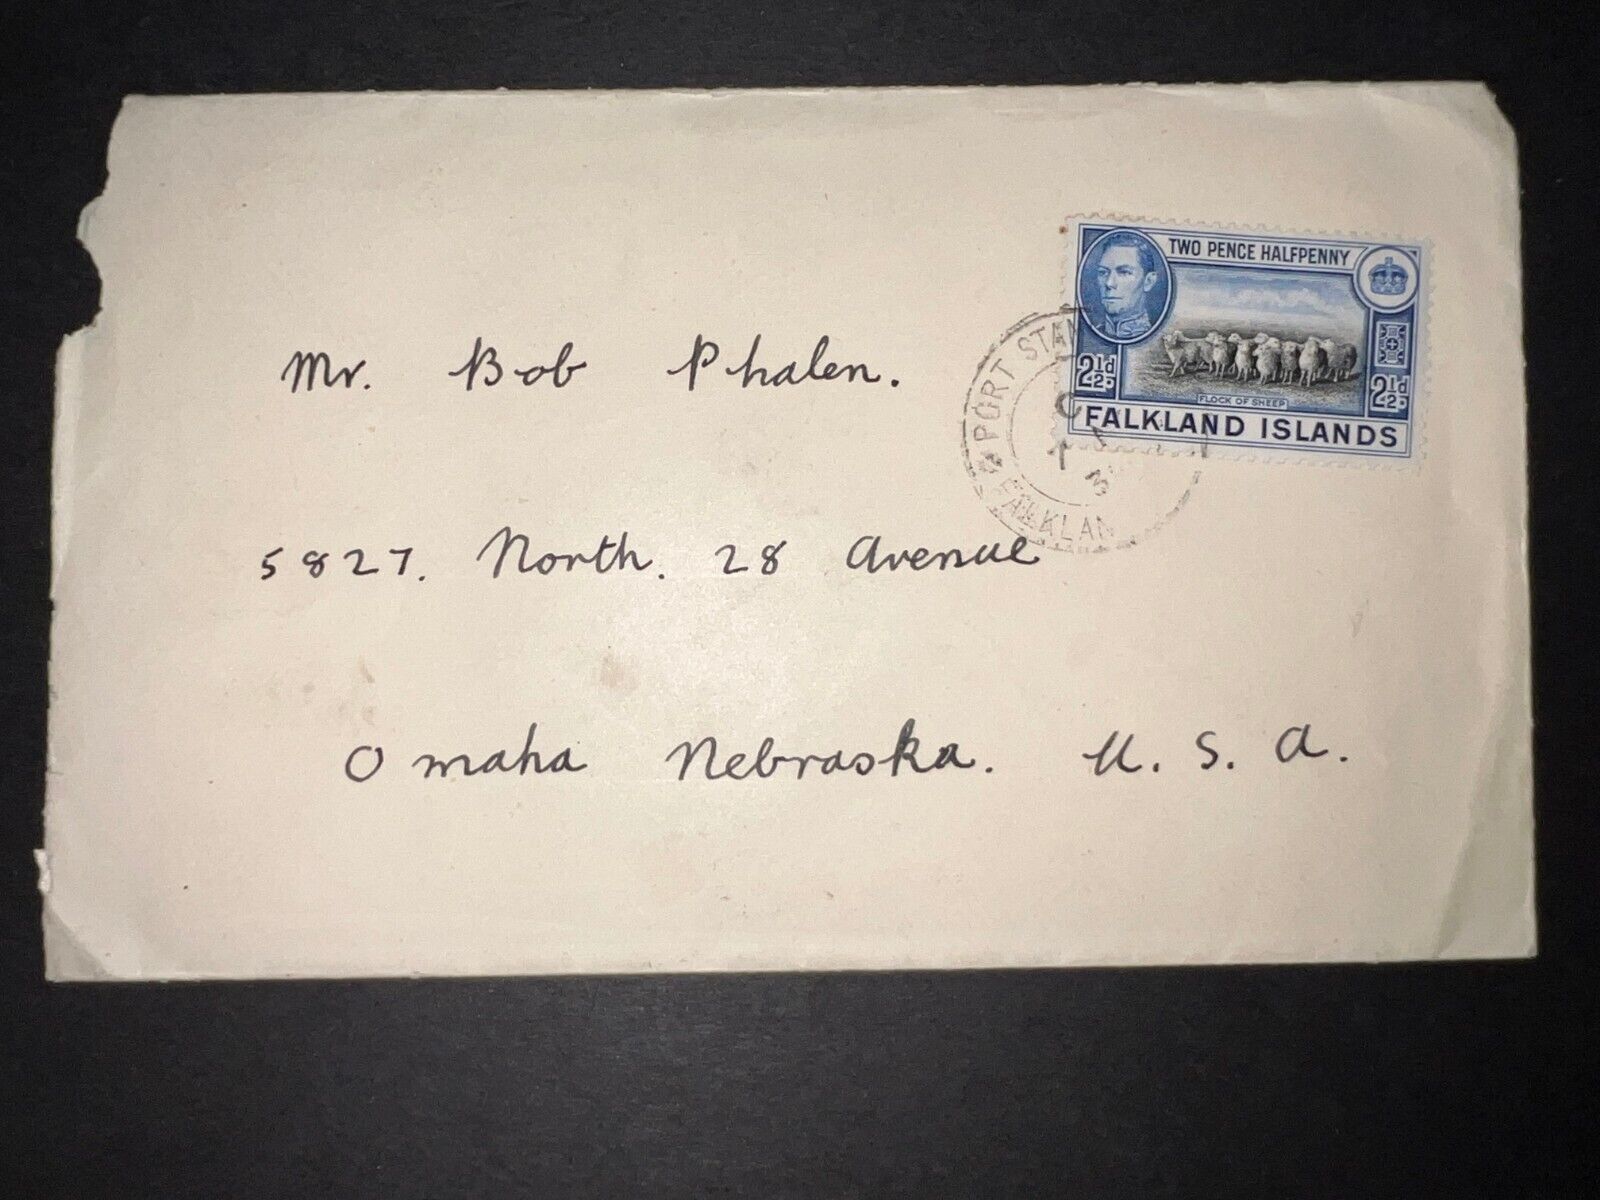 TWO PENCE HALFPENNY
2½D 2½D
FLOCK OF SHEEP
FALKLAND ISLANDS
PORT STAN
FALKLAN
Mr. Bob Phalen.
5827. North. 28 Avenue
Omaha Nebraska. U. S. A.